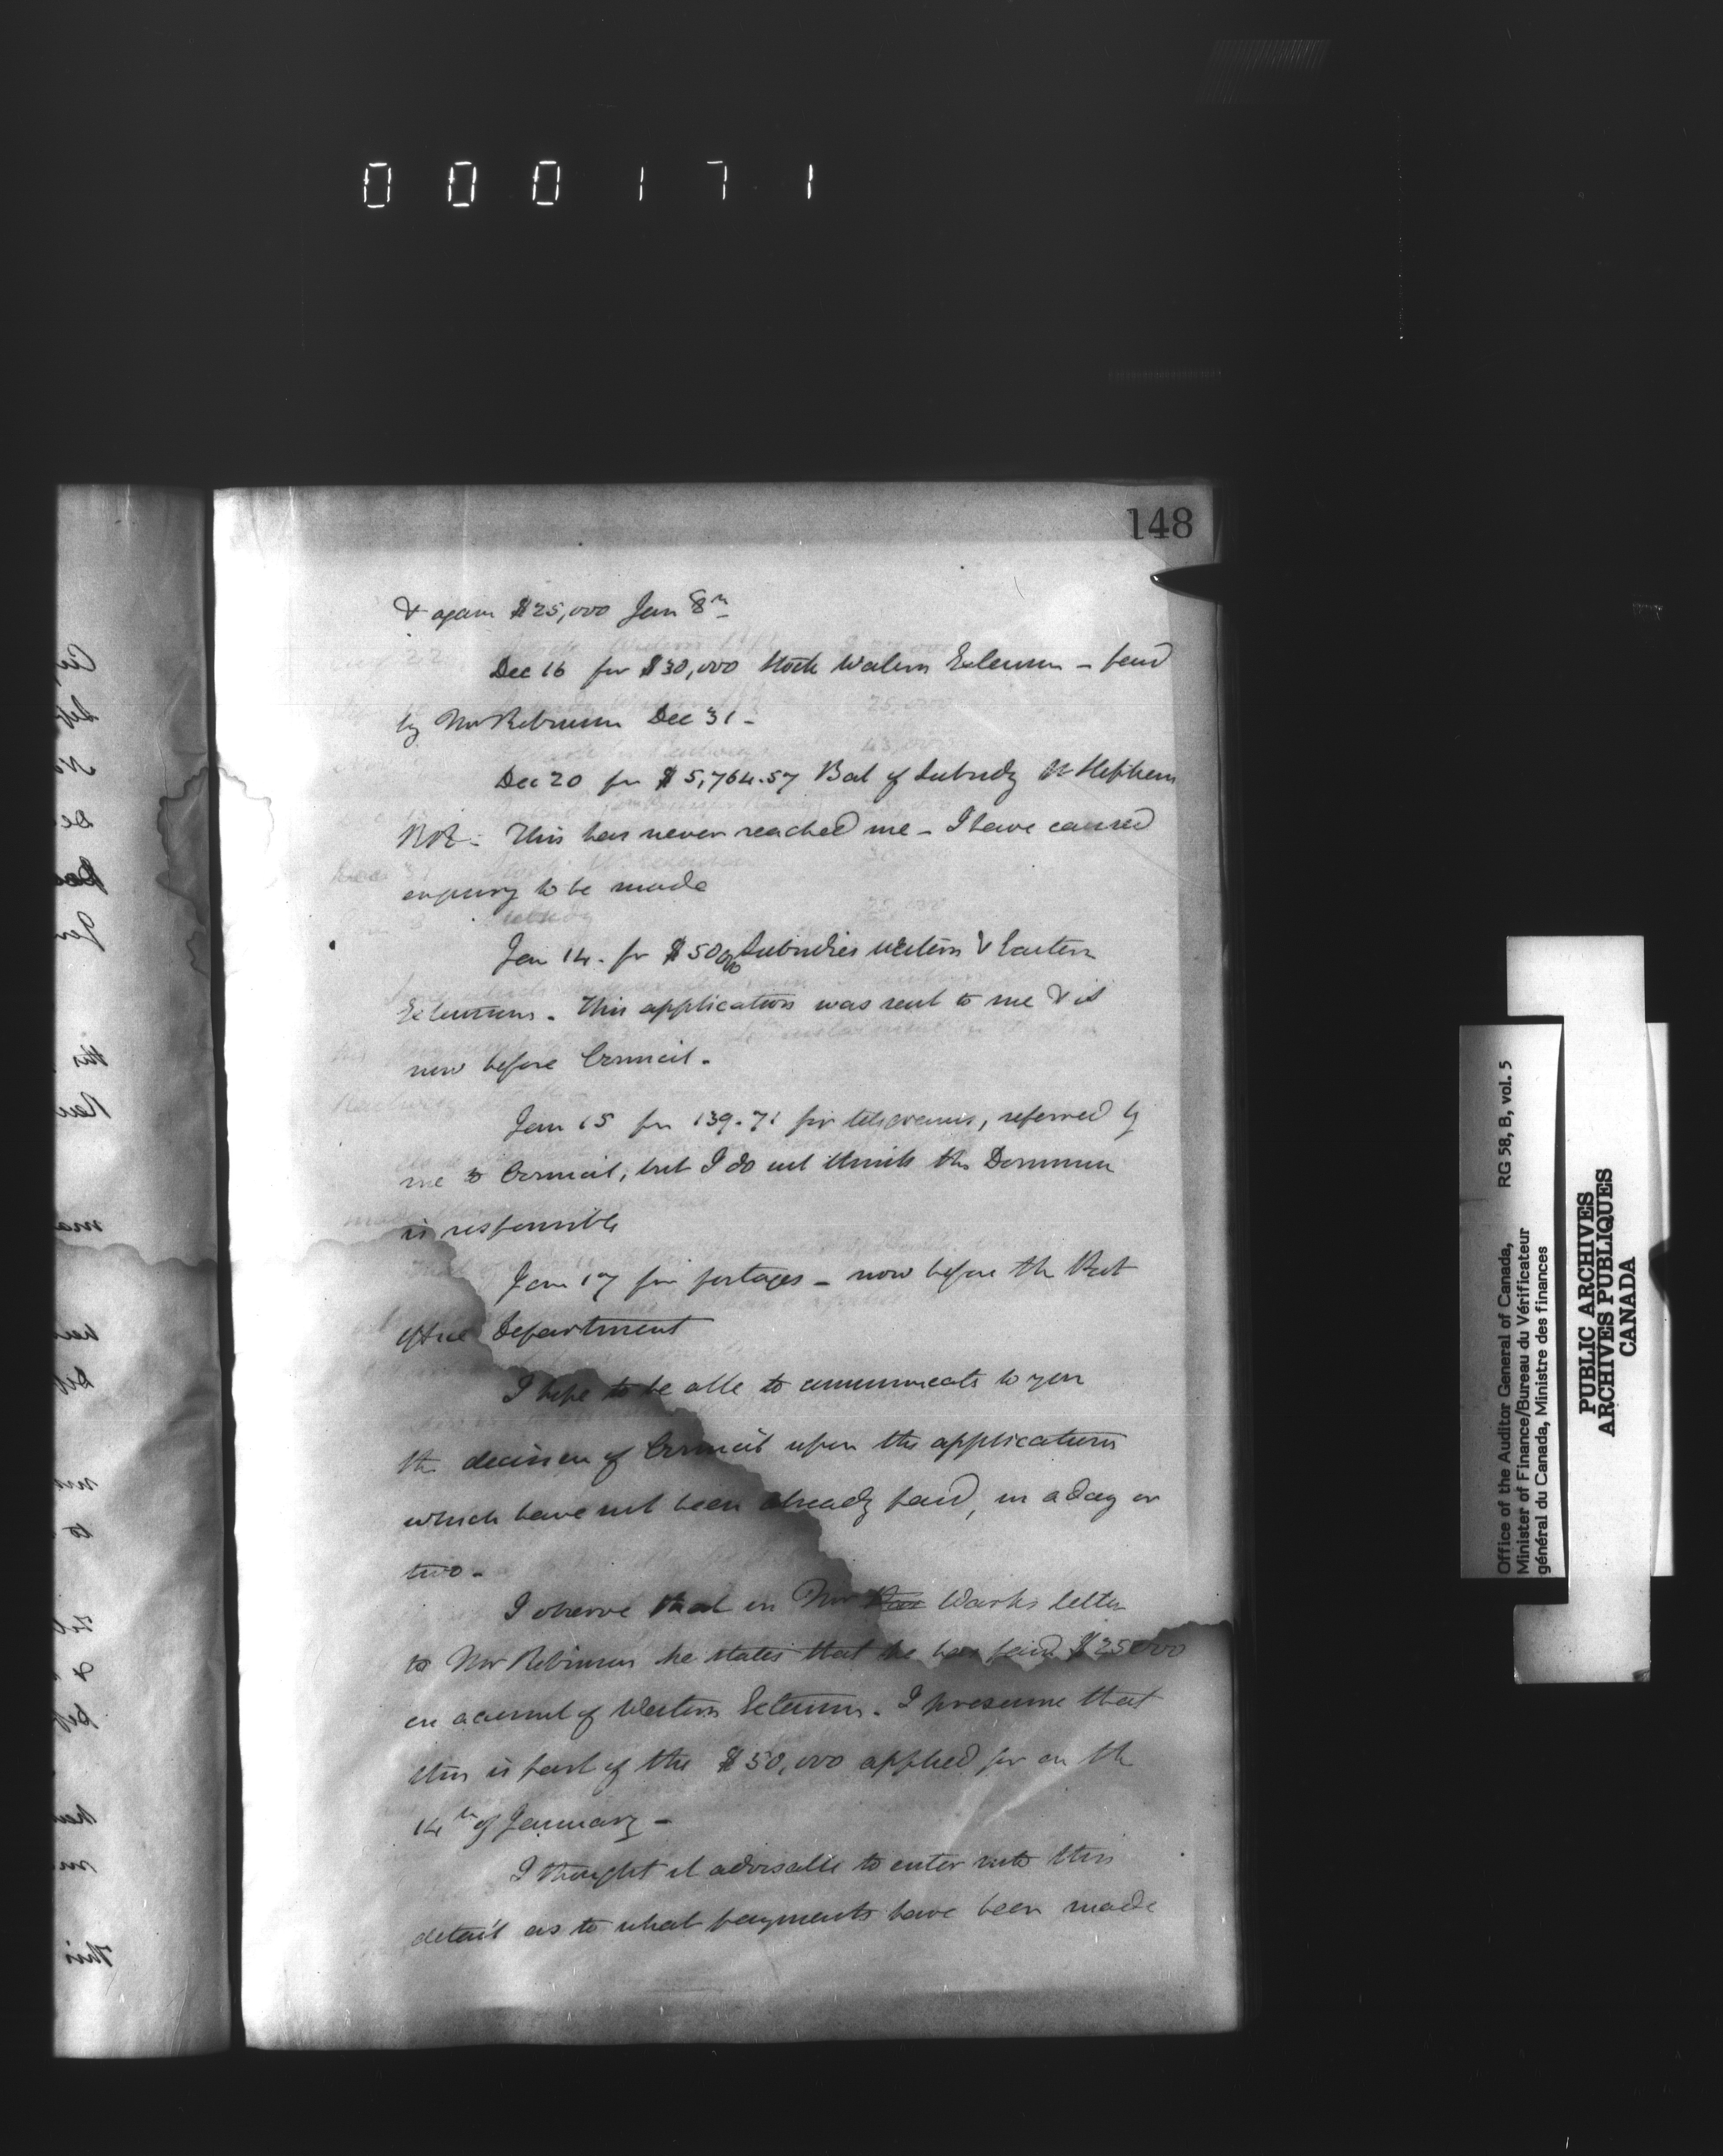 000171
148
& again $25,000 Jan 8th
Dec 16 for $30,000 Stock Western Extension - paid
by Mr Robinson Dec 31 -
Dec 20 for $5,764.57 Bal of Subsidy St Stephens
RR - This has never reached me - I have caused
enquiry to be made
Jan 14. for $50,000 Subsidies Western & Eastern
Extensions. This application was sent to me & is
now before Council.
Jan 15 for 139.71 for telegrams, referred by
me to Council, but I do not think the Dominion
is responsible
Jan 17 for postages - now before the Post
Office Department
I hope to be able to communicate to you
the decision of Council upon the applications
which have not been already paid, in a day or
two -
I observe that in Mr Warks letter
to Mr Robinson he states that he has paid $25000
on account of Western Extension. I presume that
this is part of the $50,000 applied for on the
14th of January -
I thought it advisable to enter into this
detail as to what payments have been made
Office of the Auditor General of Canada, RG 58, B, vol. 5
Minister of Finance/Bureau du Vérificateur
général du Canada, Ministre des finances
PUBLIC ARCHIVES
ARCHIVES PUBLIQUES
CANADA